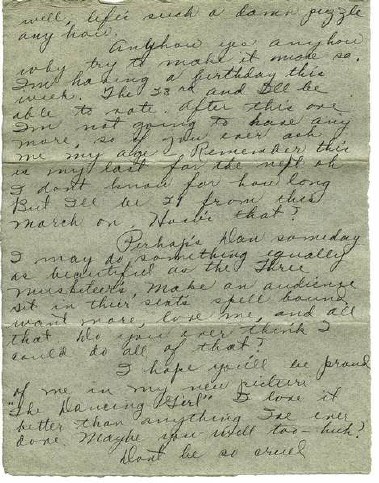 well, life's such a damn puzzle
anyhow.
Anyhow yes anyhow
why try to make it more so.
I'm having a birthday this
week. The 23rd and I'll be
able to vote. After this one
I'm not going to have any
more, so if you ever ask
me my age. Remember this
is my last for the next oh
I don't know for how long
But I'll be 21 from this
march on. How's that?
Perhaps Dan someday
I may do something equally
as beautiful as the Three
musketeers. Make an audience
sit in their seats spell bound
want more, love me, and all
that. Do you ever think I
could do all of that?
I hope you'll be proud
of me in my new picture
"The Dancing Girl" I love it
better than anything I've ever
done. Maybe you will too - huh?
Dont be so cruel